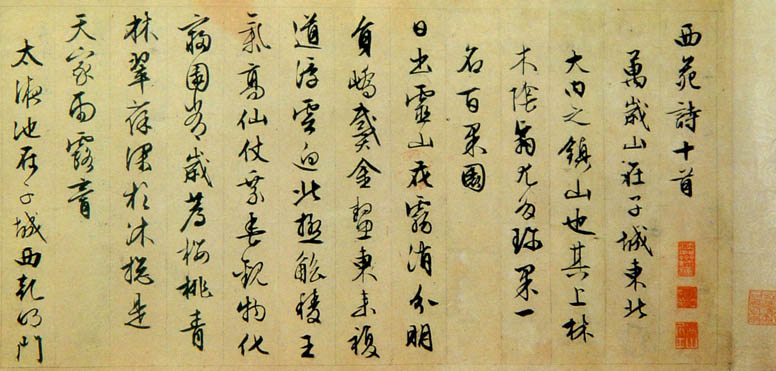 西苑詩十首
萬歲山在子城東北
大內之鎮山也其上林
木陰翳尤多珍果一
名百果園
日出靈山花霧消分明
員嶠戴金鰲東來複
道浮雲迥北極觚稜王
氣高仙仗乘春觀物化
寢園常歲薦櫻桃青
林翠葆深於沐總是
天家雨露膏
太液池在子城西乾明門